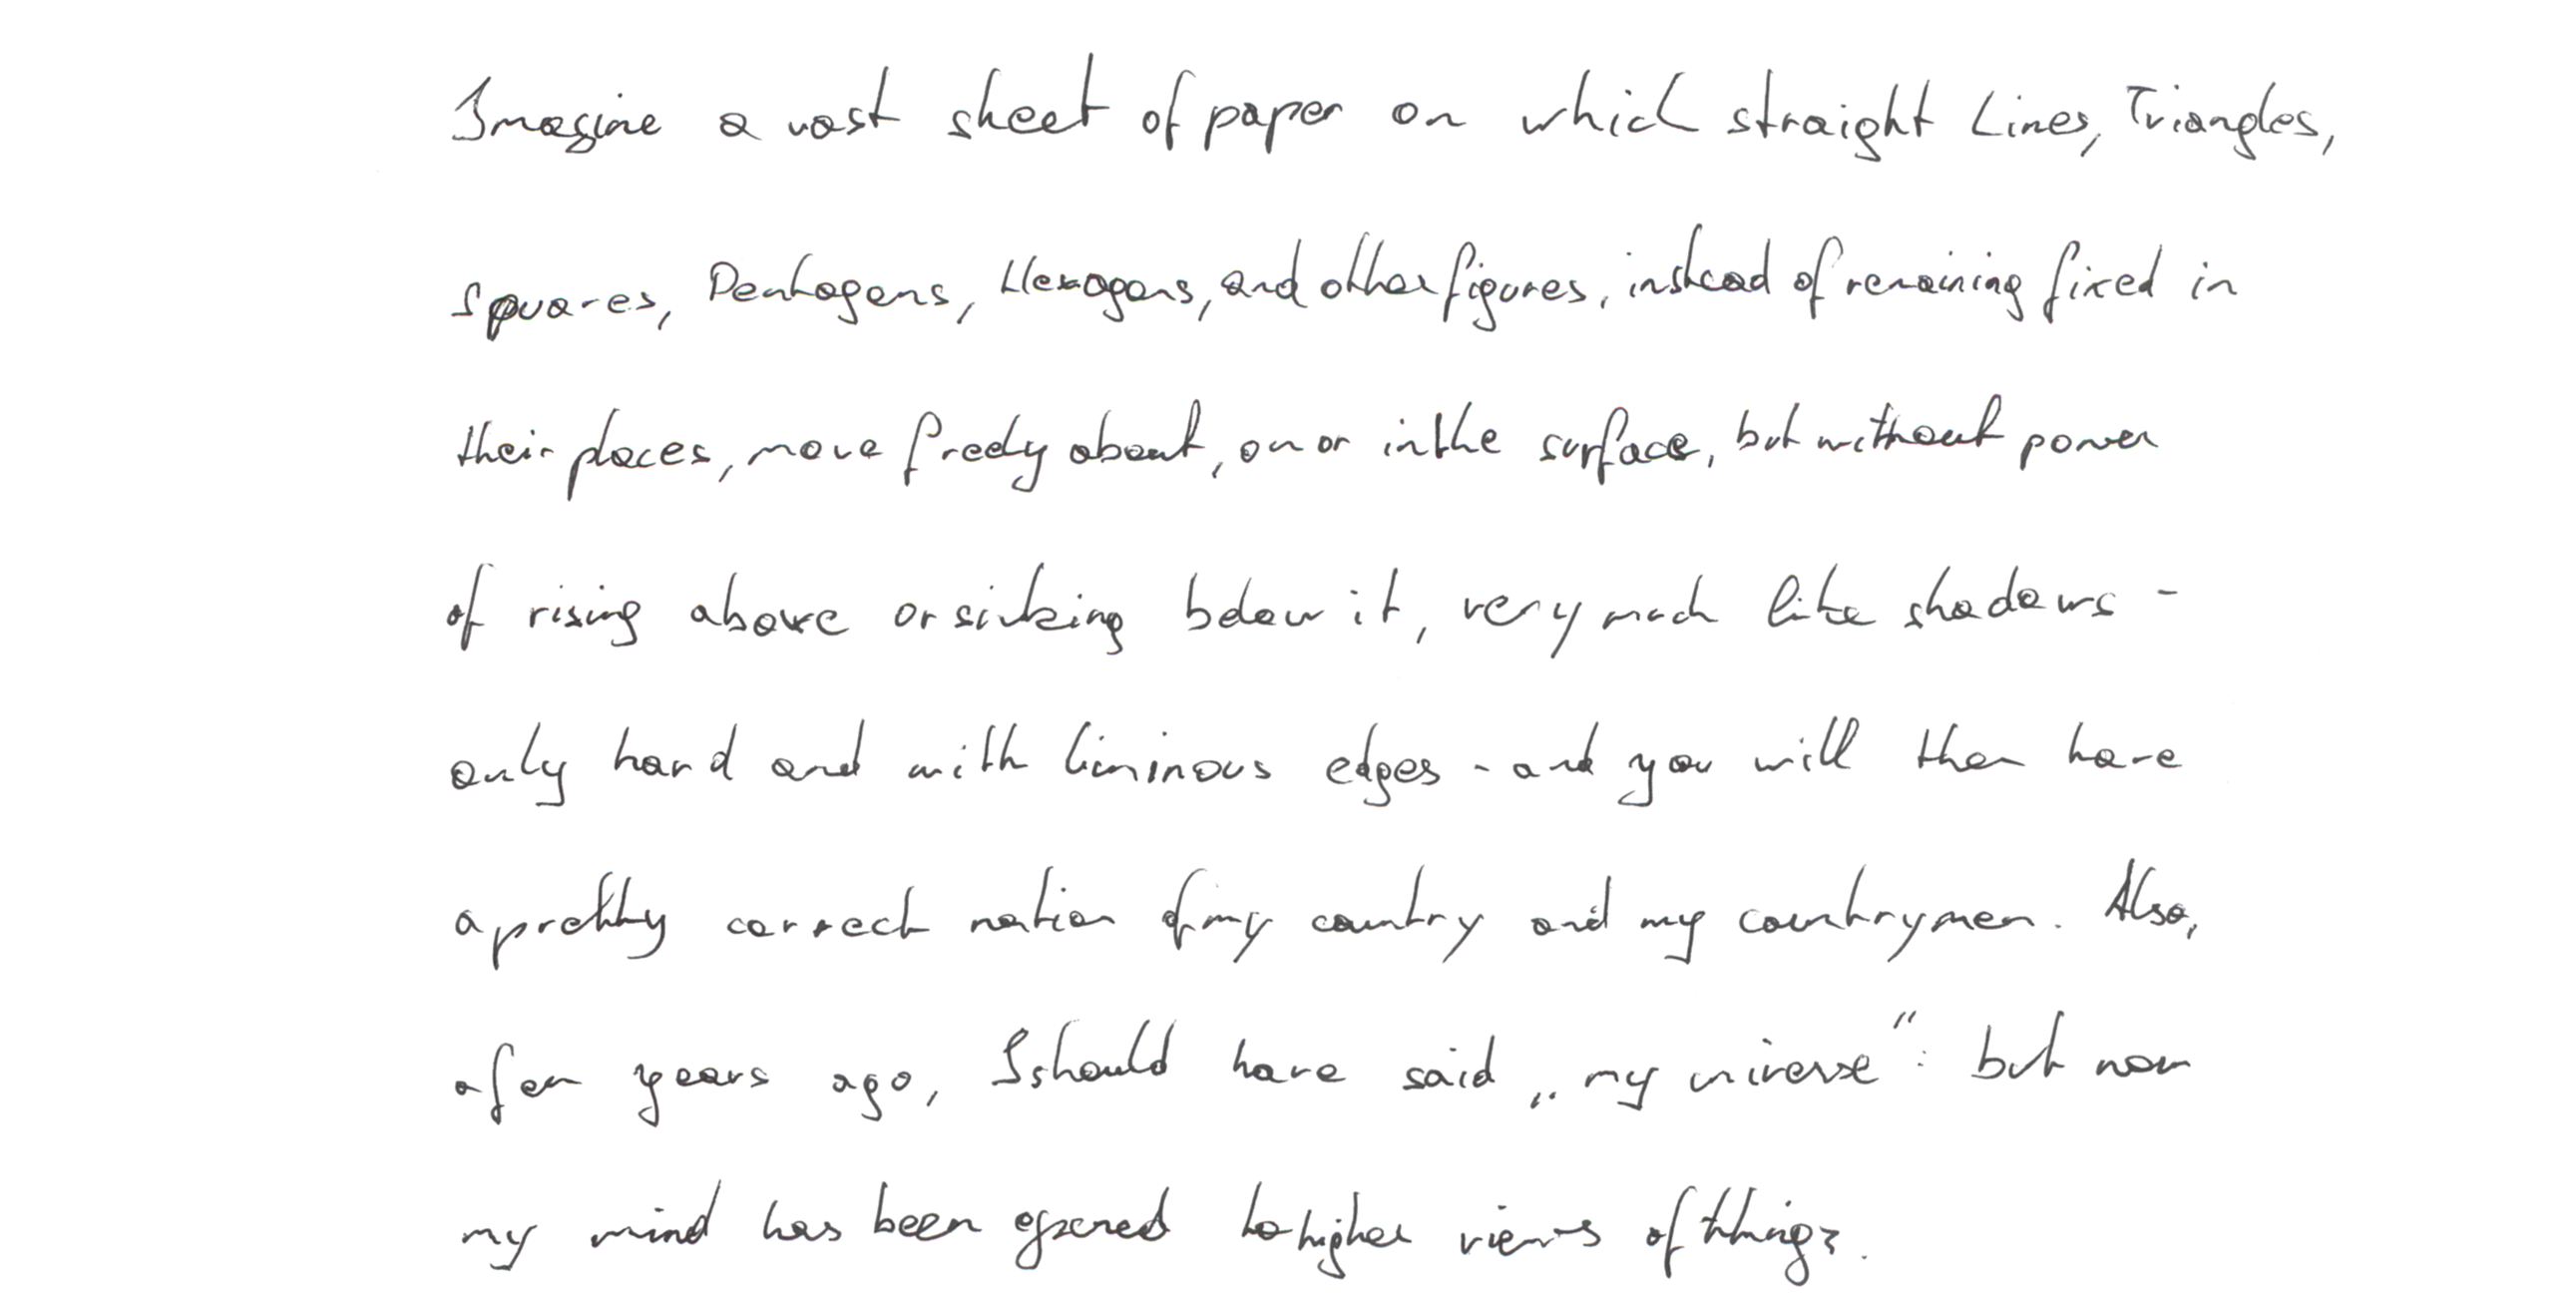 Imagine a vast sheet of paper on which straight Lines, Triangles,
Squares, Pentagons, Hexagons, and other figures, instead of remaining fixed in
their places, move freely about, on or in the surface, but without power
of rising above or sinking below it, very much like shadows -
only hard and with liminous edges - and you will then have
a pretty correct notion of my country and my countrymen. Also,
a few years ago, I should have said „my universe“: but now
my mind has been opened to higher views of things.